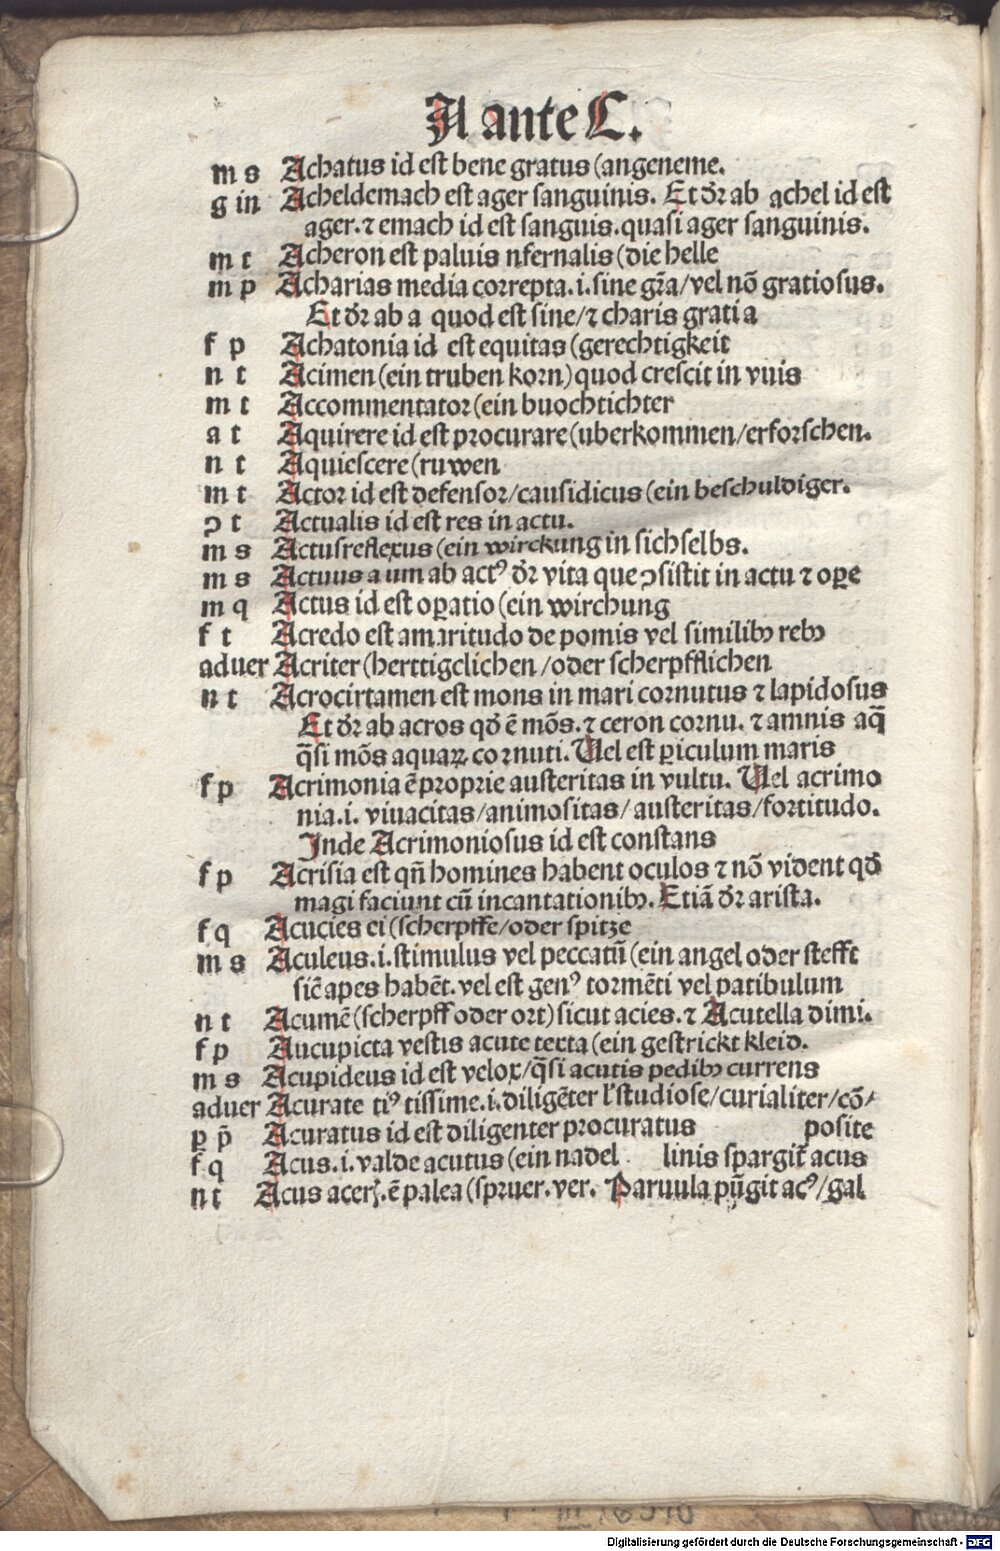 A ante C.
m s Achatus id est bene gratus (angeneme.
g in Acheldemach est ager sanguinis. Et dr̄ ab achel id est
ager. ⁊ emach id est sanguis. quasi ager sanguinis.
m t Acheron est paluis nfernalis (die helle
m p Acharias media correpta. i. sine gr̄a / vel nō gratiosus.
Et dr̄ ab a quod est sine / ⁊ charis gratia
f p Achatonia id est equitas (gerechtigkeit
n t Acimen (ein truben korn) quod crescit in vuis
m t Accommentator (ein buochtichter
a t Aquirere id est procurare (uberkommen / erforschen.
n t Aquiescere (ruwen
m t Actor id est defensor / causidicus (ein beschuldiger.
ↄ t Actualis id est res in actu.
m s Actusreflexus (ein wirckung in sich selbs.
m s Actuus a um ab actꝰ dr̄ vita que ↄsistit in actu ⁊ oꝑe
m q Actus id est oꝑatio (ein wirchung
f t Acredo est amaritudo de pomis vel similibꝫ rebꝫ
aduer Acriter (herttigclichen / oder scherpfflichen
n t Acrocirtamen est mons in mari cornutus ⁊ lapidosus
Et dr̄ ab acros qd̄ ē mōs. ⁊ ceron cornu. ⁊ amnis aq̄
q̄si mōs aquaꝝ cornuti. Uel est ꝑiculum maris
f p Acrimonia ē proprie austeritas in vultu. Uel acrimo
nia. i. viuacitas / animositas / austeritas / fortitudo.
Inde Acrimoniosus id est constans
f p Acrisia est qn̄ homines habent oculos ⁊ nō vident qd̄
magi faciunt cū incantationibꝫ. Etiā dr̄ arista.
f q Acucies ei (scherpffe / oder spitze
m s Aculeus. i. stimulus vel peccatū (ein angel oder stefft
sic̄ apes habēt. vel est genꝰ tormēti vel patibulum
n t Acumē (scherpff oder ort) sicut acies. ⁊ Acutella dimi.
f p Aucupicta vestis acute texta (ein gestrickt kleid.
m s Acupideus id est velox / q̄si acutis pedibꝫ currens
aduer Acurate tiꝰ tissime. i. diligēter lꝰ studiose / curialiter / cō /
ꝑ p̄ Acuratus id est diligenter procuratus posite
f q Acus. i. valde acutus (ein nadel linis spargit acus
n t Acus aceꝝ. ē palea (spruer. ver. Paruula pūgit acꝰ / gal